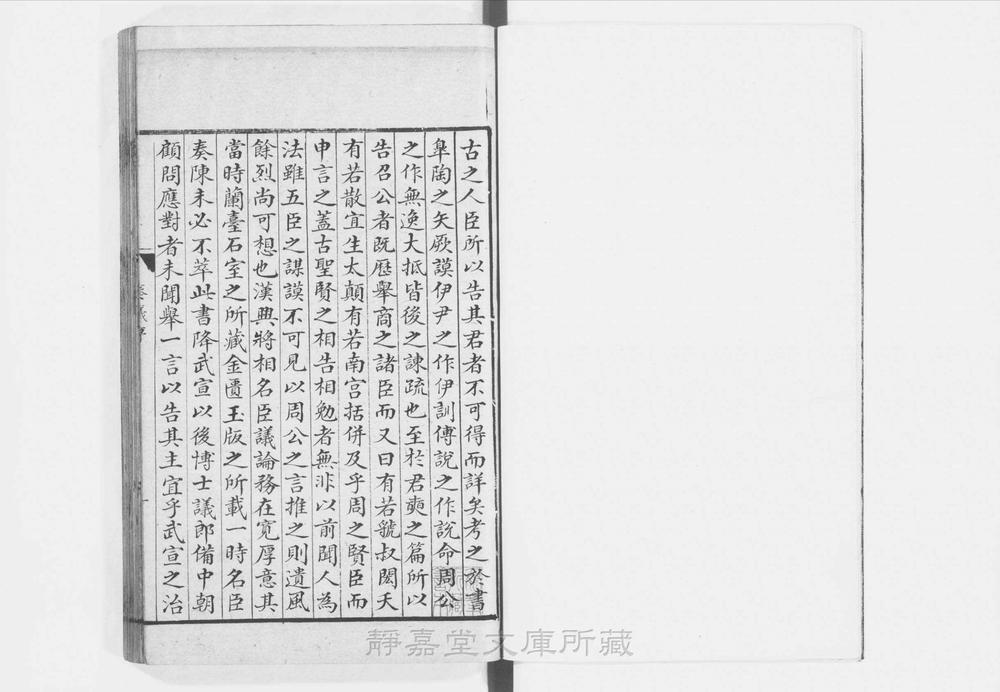 古之人臣所以告其君者不可得而詳矣考之於書
臯陶之矢厥謨伊尹之作伊訓傅說之作說命周公
之作無逸大抵皆後之諫疏也至於君奭之篇所以
告召公者既歷舉商之諸臣而又曰有若虢叔閎夭
有若散宜生太顛有若南宮括併及乎周之賢臣而
申言之蓋古聖賢之相告相勉者無非以前聞人為
法雖五臣之謀謨不可見以周公之言推之則遺風
餘烈尚可想也漢興將相名臣議論務在寬厚意其
當時蘭臺石室之所藏金匱玉版之所載一時名臣
奏陳未必不萃此書降武宣以後博士議郎備中朝
顧問應對者未聞舉一言以告其主宜乎武宣之治
靜嘉堂文庫所藏